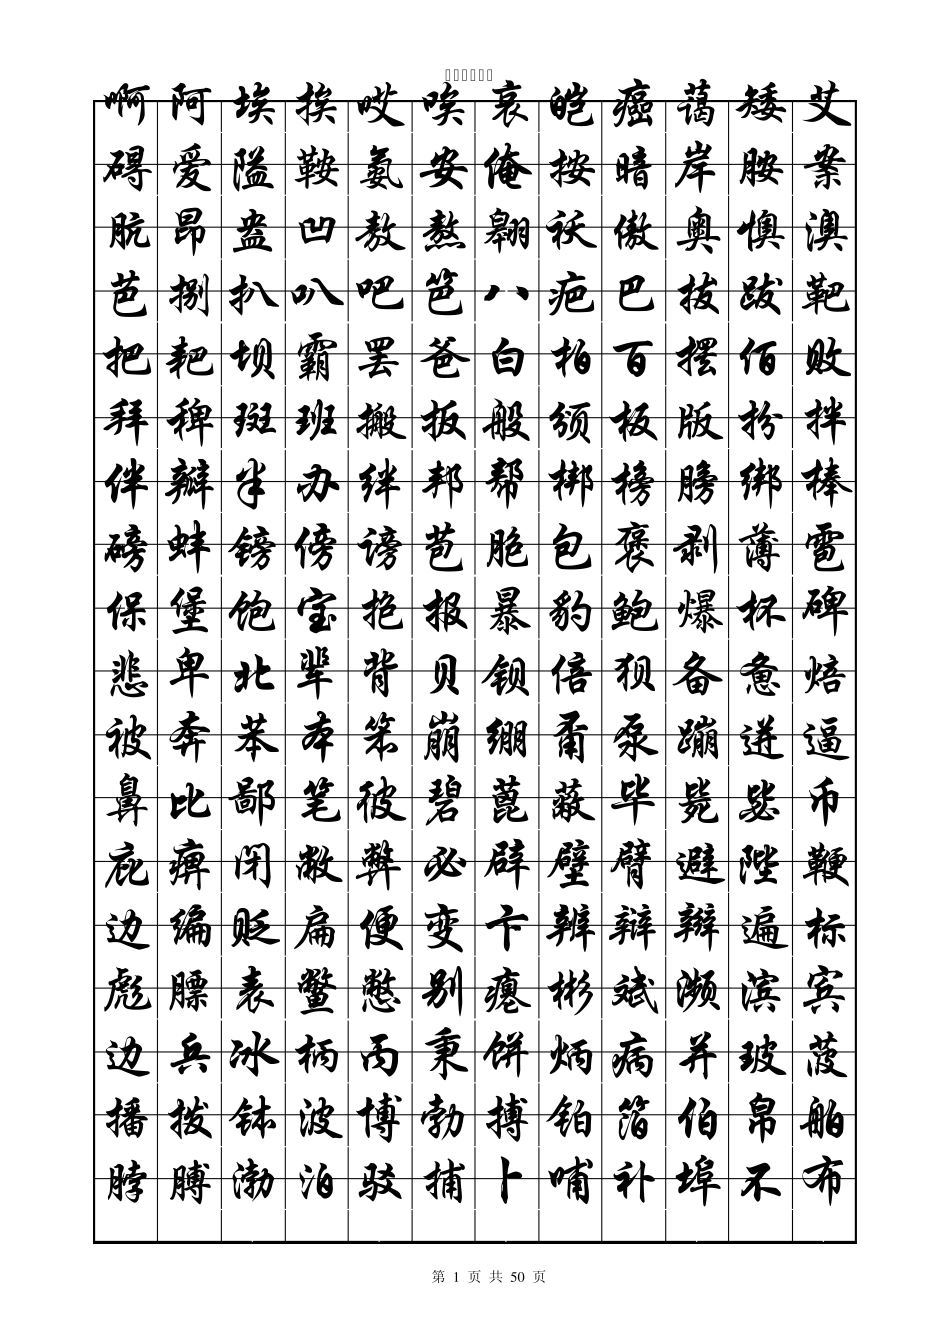 啊阿埃挨哎唉哀皑癌蔼矮艾
碍爱隘鞍氨安俺按暗岸胺案
肮昂盎凹敖熬翱袄傲奥懊澳
芭捌扒叭吧笆八疤巴拔跋靶
把耙坝霸罢爸白柏百摆佰败
拜稗斑班搬扳般颁板版扮拌
伴瓣半办绊邦帮梆榜膀绑棒
磅蚌镑傍谤苞胞包褒剥薄雹
保堡饱宝抱报暴豹鲍爆杯碑
悲卑北辈背贝钡倍狈备惫焙
被奔苯本笨崩绷甭泵蹦迸逼
鼻比鄙笔彼碧蓖蔽毕毙毖币
庇痹闭敝弊必辟壁臂避陛鞭
边编贬扁便变卞辨辩辫遍标
彪膘表鳖憋别瘪彬斌濒滨宾
边兵冰柄丙秉饼炳病并玻菠
播拨钵波博勃搏铂箔伯帛舶
脖膊渤泊驳捕卜哺补埠不布
第 1 页 共 50 页